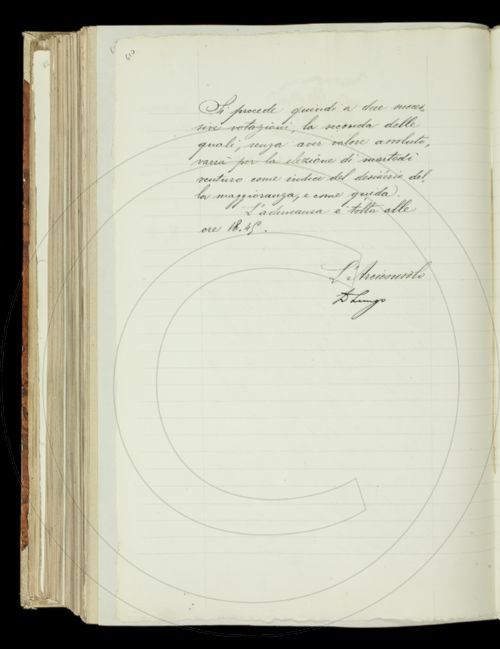 Si procede quindi a due succes,
sive votazioni, la seconda delle
quali, senza aver valore assoluto,
varrà per la elezione di martedì
venturo come indice del desiderio del,
la maggioranza, e come guida.
L'adunanza è tolta alle
ore 18.45.
L'Arciconsolo